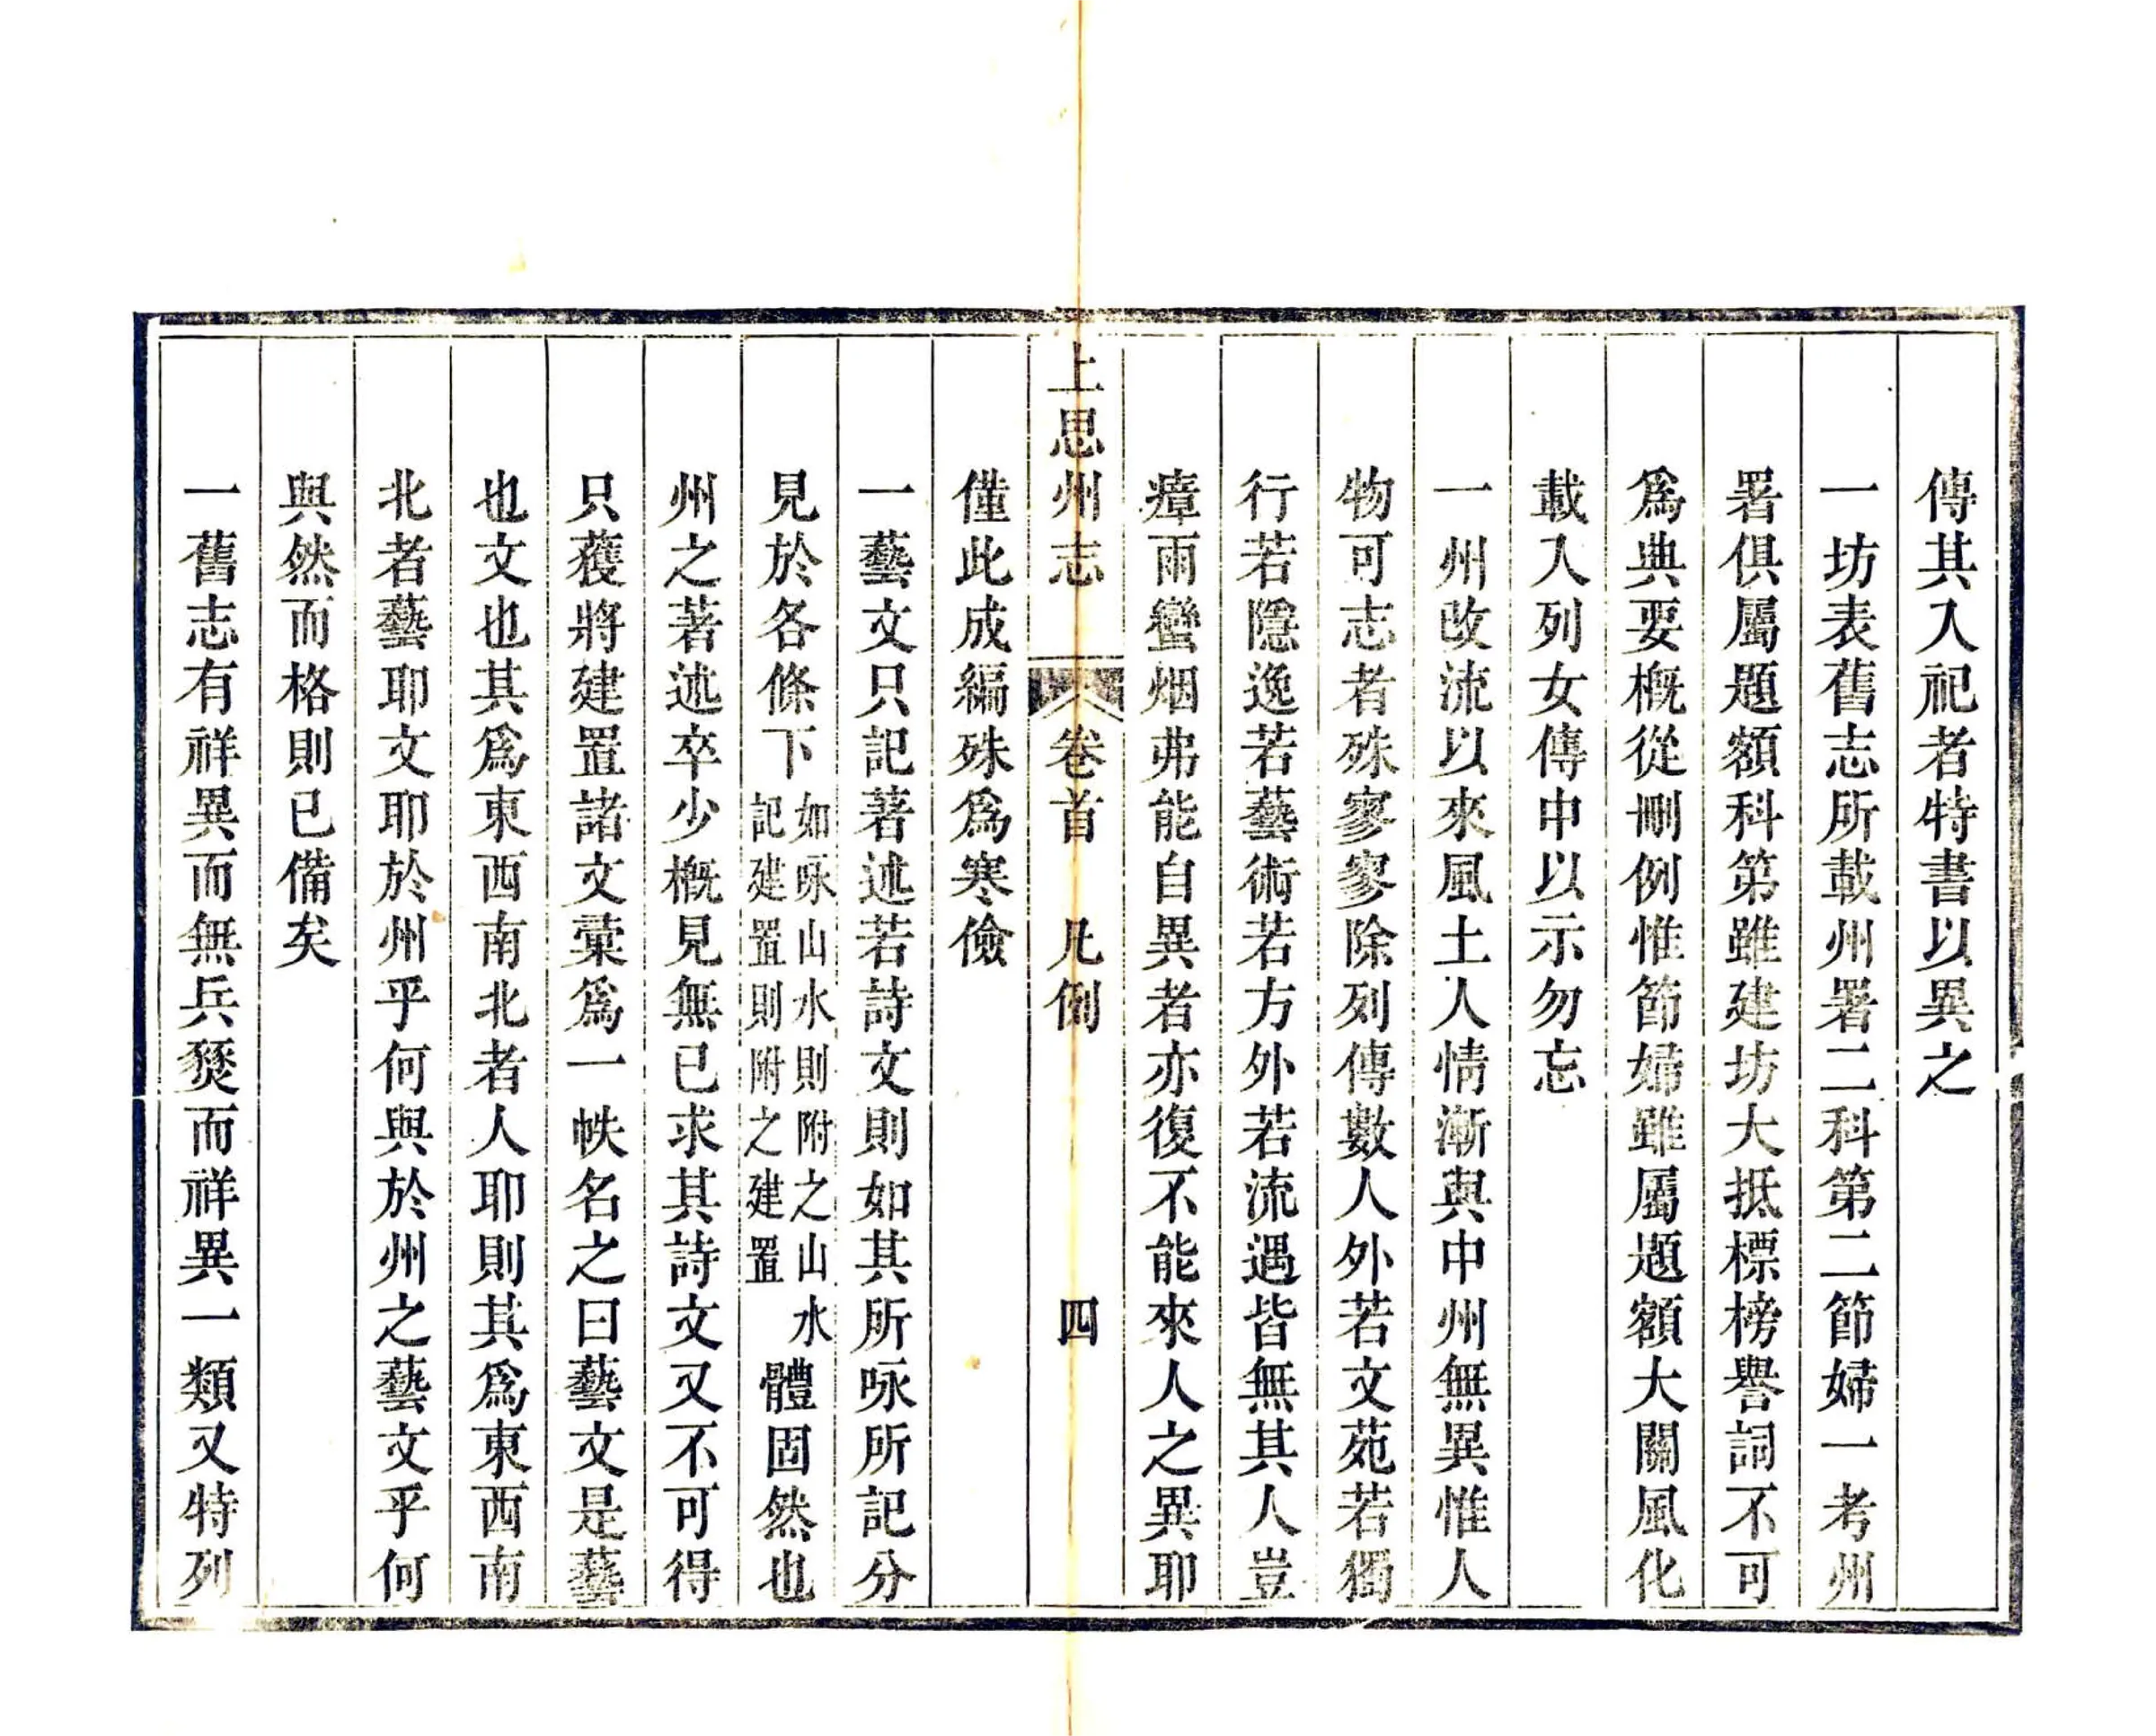 傳其入祀者特書以異之
一坊表舊志所載州署二科第二節婦一考州
署俱屬題額科第雖建坊大抵標榜譽詞不可
爲典要槪從刪例惟節婦雖屬題額大關風化
載入列女傳中以示勿忘
一州改流以來風土人情漸與中州無異惟人
物可志者殊寥寥除列傳數人外若文苑若獨
行若隱逸若藝術若方外若流遇皆無其人豈
瘴雨蠻烟弗能自異者亦復不能來人之異耶
上思州志 卷首 凡例 四
僅此成編殊爲寒儉
一藝文只記著述若詩文則如其所咏所記分
見於各條下如咏山水則附之山水記建置則附之建置體固然也
州之著述卒少槪見無已求其詩文又不可得
只蒦將建置諸文彙爲一帙名之曰藝文是藝
也文也其爲東西南北者人耶則其爲東西南
北者藝耶文耶於州乎何與於州之藝文乎何
與然而格則已備矣
一舊志有祥異而無兵燹而祥異一類又特列